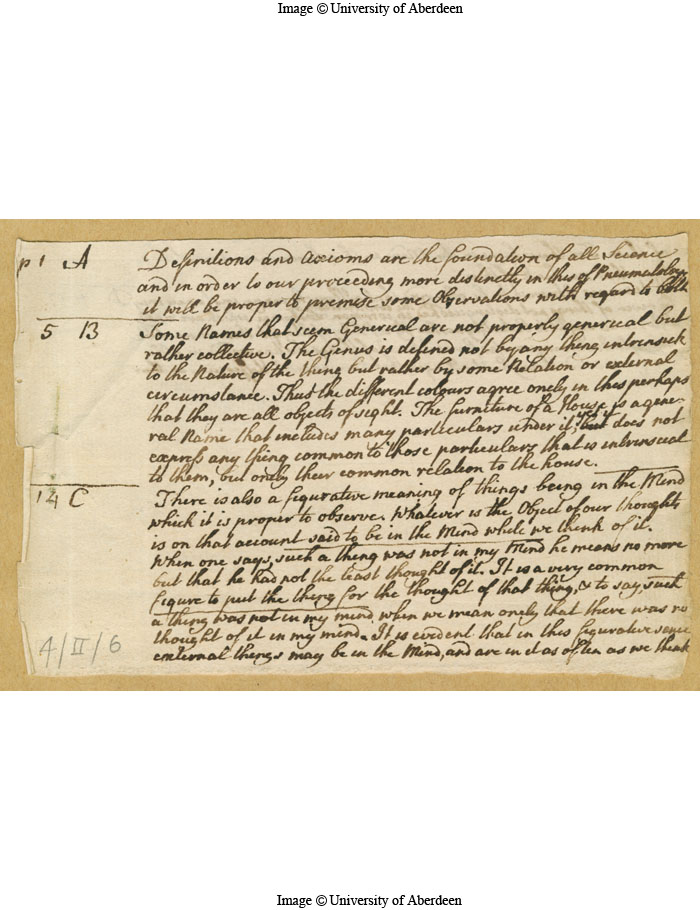 Image © University of Aberdeen
p 1 A Definitions and axioms are the foundation of all Science
and in order to our proceeding more distinctly in this of Pneumatology
it will be proper to premise some Observations with regard to both
5 B Some Names that seem Generical are not properly generical but
rather collective. The Genus is defined not by any thing intrinsick
to the Nature of the thing but rather by some Relation or external
circumstance. Thus the different colours agree onely in this perhaps
that they are all objects of sight. The furniture of a House is a gene-
ral Name that includes many particulars under it but does not
express any thing common to those particulars that is intrinsical
to them, but onely their common relation to the house.
14 C There is also a figurative meaning of things being in the Mind
which it is proper to observe. Whatever is the Object of our thoughts
is on that account said to be in the Mind while we think of it.
When one says, such a thing was not in my Mind he means no more
but that he had not the least thought of it. It is a very common
figure to put the thing for the thought of that thing, & to say, such
a thing was not in my mind, when we mean onely that there was no
thought of it in my mind. It is evident that in this figurative sense
external things may be in the Mind, and are in it as often as we think
4/II/6
Image © University of Aberdeen